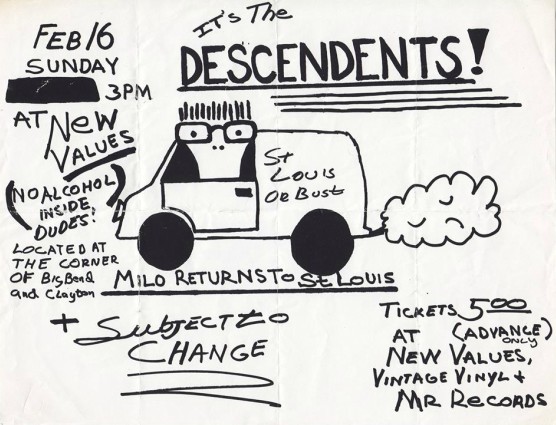 FEB 16
SUNDAY
3PM
AT New
VALUES
(NO ALCOHOL
INSIDE
DUDES!)
LOCATED AT
THE CORNER
OF Big Bend
and Clayton
IT'S The
DESCENDENTS!
St
LOUIS
OR BUST
MILO RETURNS TO St LOUIS
+ SUBJECT TO
CHANGE
TICKETS 5.00
AT (ADVANCE)
ONLY
NEW VALUES,
VINTAGE VINYL +
MR RECORDS